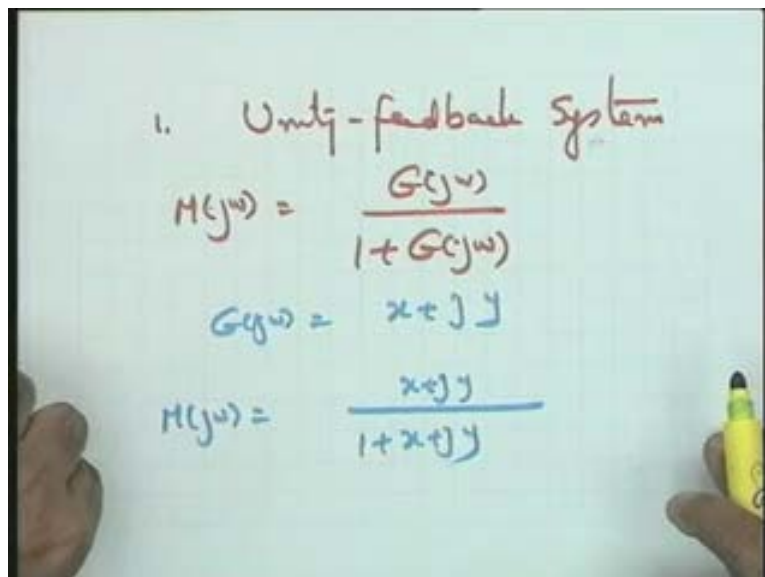 1. Unity-feedback System
M(jω) = G(jω) / 1 + G(jω)
G(jω) = x + j y
M(jω) = x + j y / 1 + x + j y